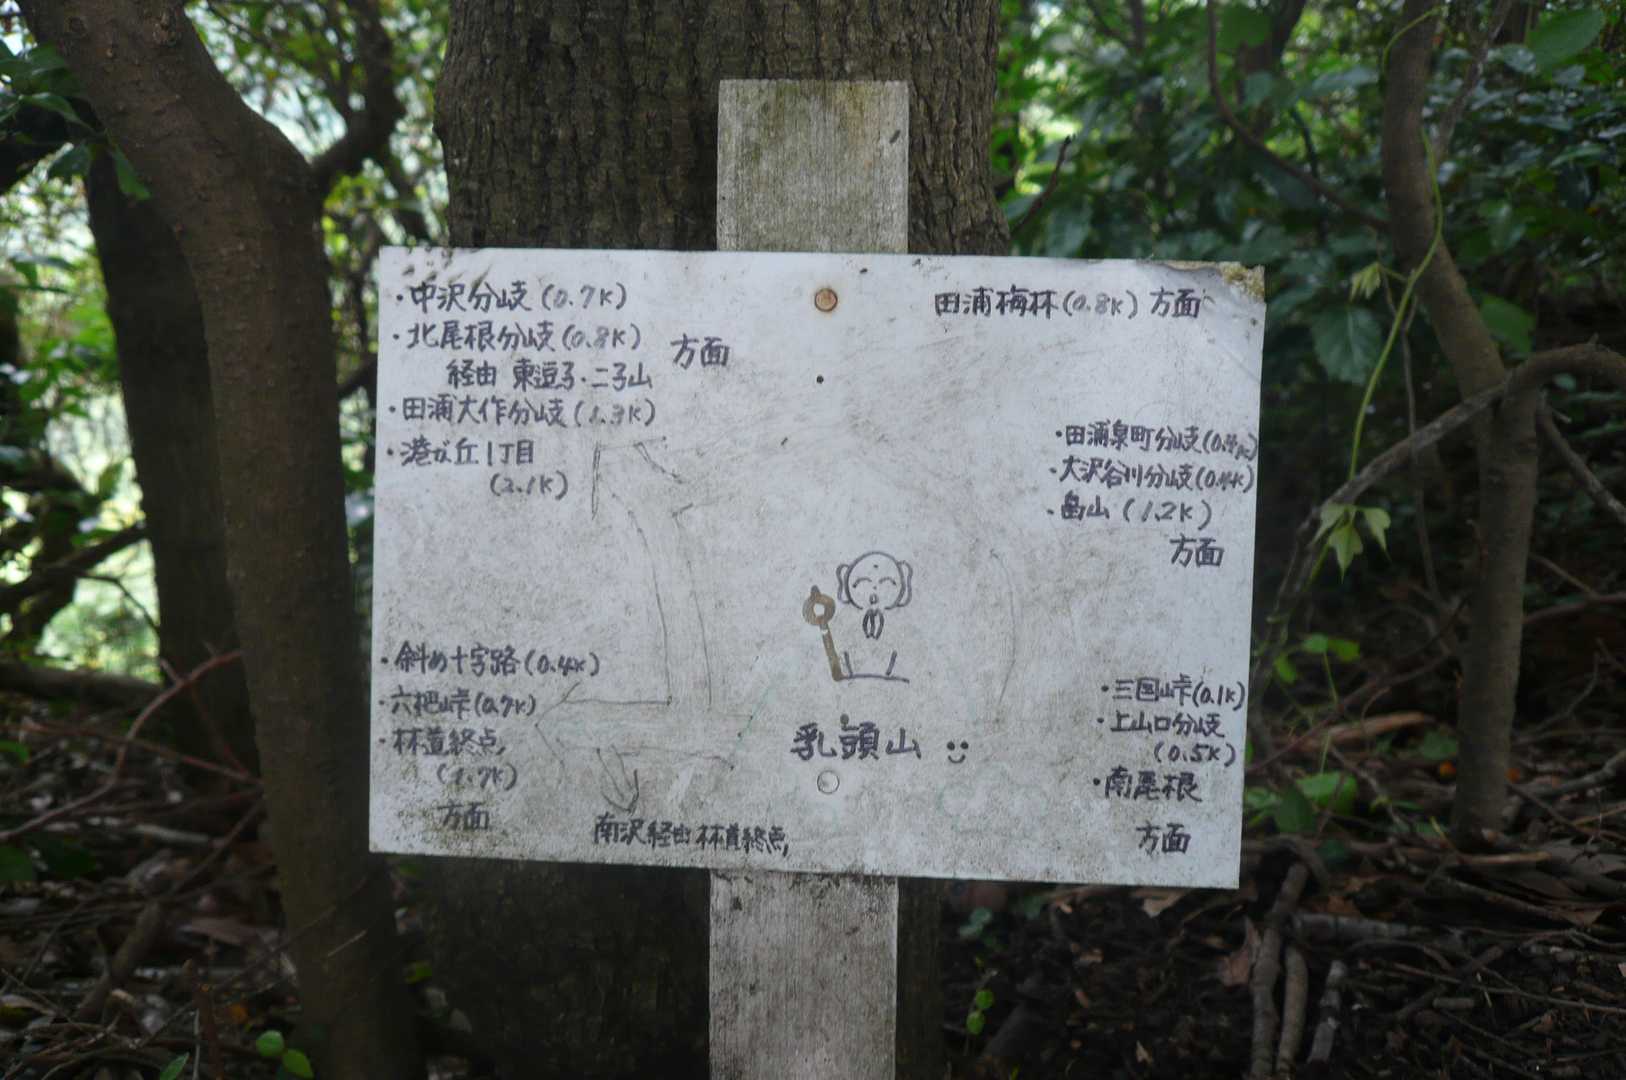 ・中沢分岐(0.7K)
・北尾根分岐(0.8K)
経由 東逗子・二子山
方面
・田浦大作分岐(1.3K)
・港が丘1丁目
(2.1K)
田浦梅林(0.8K)方面
・田浦泉町分岐
・大沢谷川分岐(0.4K)
・畠山(1.2K)
方面
・斜め十字路(0.4K)
・六把峠(0.7K)
・林道終点
(1.7K)
方面
南沢経由 林道終点
乳頭山
・三国峠(0.1K)
・上山口分岐
(0.5K)
・南尾根
方面